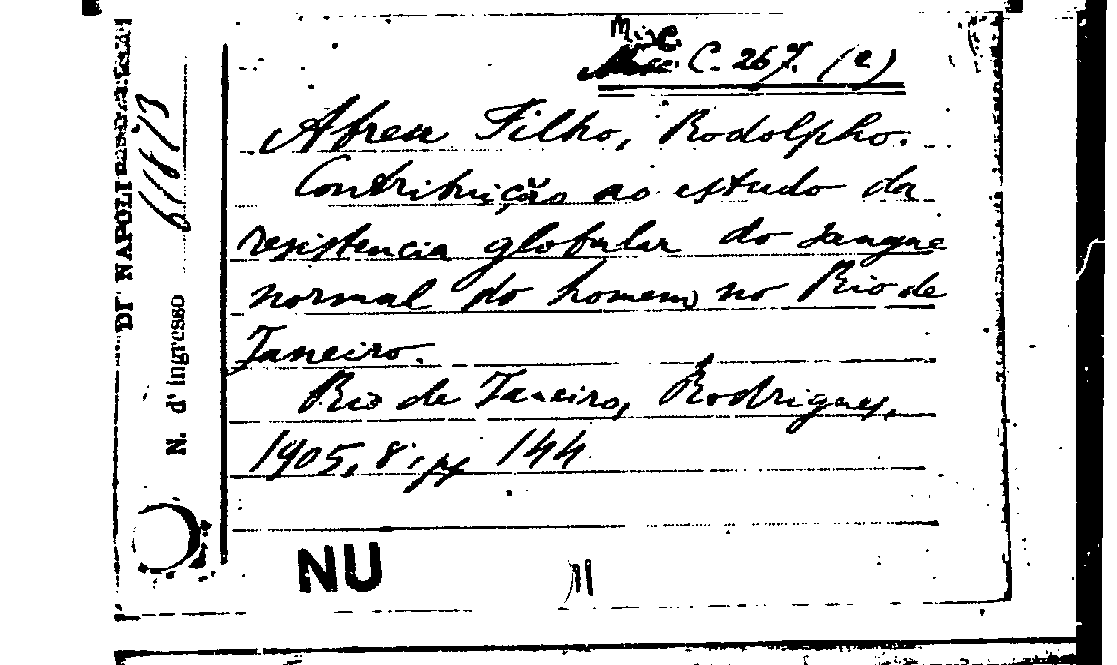 Misc.
Misc. C. 267. (2)
Abreu Filho, Rodolpho.
Contribuição ao estudo da
resistencia globular do sangue
normal do homem no Rio de
Janeiro.
Rio de Janeiro, Rodrigues,
1905, 8°, pp 144
NU
DI NAPOLI
N. d'ingresso 611873